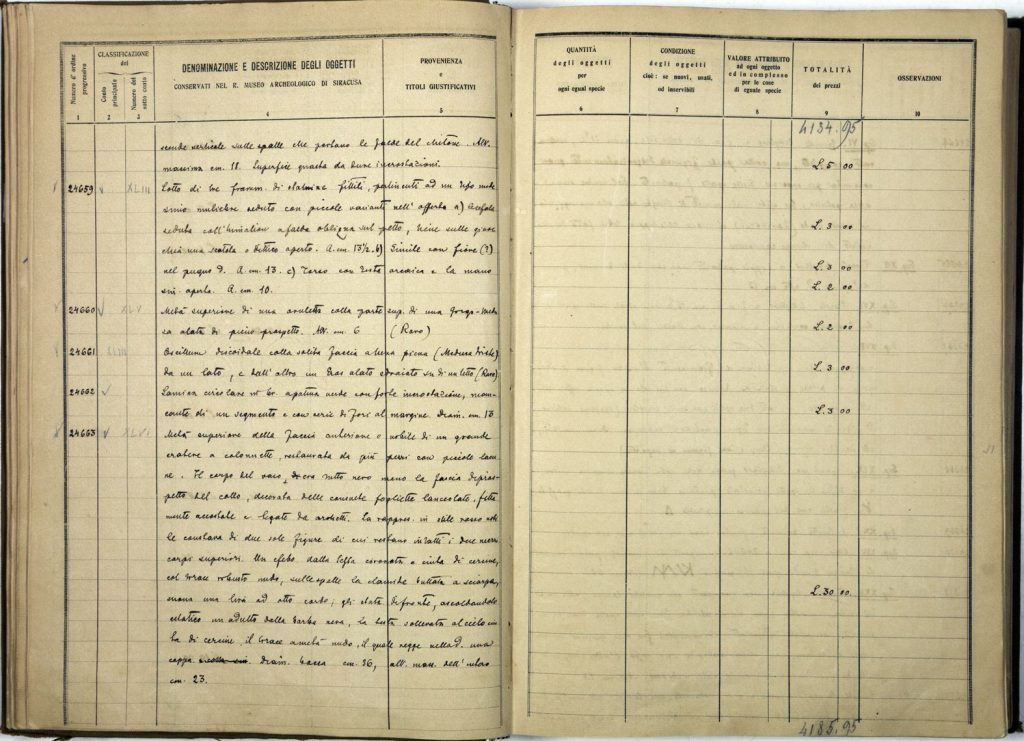 Numero d'ordine progressivo
CLASSIFICAZIONE del
Conto principale
Numero del sotto conto
DENOMINAZIONE E DESCRIZIONE DEGLI OGGETTI
CONSERVATI NEL R. MUSEO ARCHEOLOGICO DI SIRACUSA
PROVENIENZA
e
TITOLI GIUSTIFICATIVI
1 2 3 4 5
scende verticale sulle spalle che portano le falde del chitone. Alt.
massima cm. 18. Superficie guasta da dure incrostazioni.
24659 XLIII Lotto di tre framm. di statuine fittili, pertinenti ad un tipo
muliebre seduto con piccole varianti nell'offerta a) Acefala
seduta coll'himation a falda obliqua sul petto, tiene sulle
una scatola o dittico aperto. A. cm. 13½. b) Simile con fiore (?)
nel pugno d. A. cm. 13. c) Torso con testa arcaica e la mano
sin. aperta. A. cm. 10.
24660 XLV Metà superiore di una aruletta colla parte sup. di una Gorgo-Medu
sa alata di pieno prospetto. Alt. cm. 6 (Raro)
24661 XLIII Oscillum discoidale colla solita faccia a luna piena (Medusa triste)
da un lato, e dall'altro un Eros alato sdraiato su di un letto (Raro)
24662 Lamina circolare in br. a patina verde con forte incrostazione, man-
cante di un segmento e con serie di fori al margine. Diam. cm. 13
24663 XLVI Metà superiore della faccia anteriore o nobile di un grande
cratere a colonnette, restaurato da più pezzi con piccole lacu
ne. Il corpo del vaso era tutto nero meno la faccia di pros-
petto del collo, decorata delle consuete fogliette lanceolate, fitta
mente accostate e legate da archetti. La rappres. in stile rosso
le constava di due sole figure di cui restano intatti i due mezzi
corpi superiori. Un efebo dalla testa coronata e cinta di cercine,
col torace robusto nudo, sulle spalle la clamide buttata a sciarpa,
suona una lira ad otto corde; gli stata di fronte, ascoltandolo
estatico un adulto dalla barba nera, la testa sollevata al cielo cin
ta di cercine, il torace a metà nudo, il quale regge nella d. una
coppa. Diam. bocca cm. 36, alt. mass. dell'intero
cm. 23.
QUANTITÀ
degli oggetti
per
ogni egual specie
CONDIZIONE
degli oggetti
cioè: se nuovi, usati,
od inservibili
VALORE ATTRIBUITO
ad ogni oggetto
ed in complesso
per le cose
di eguale specie
TOTALITÀ
dei prezzi
OSSERVAZIONI
6 7 8 9 10
4134.95
L. 5 00
L. 3 00
L. 3 00
L. 2 00
L. 2 00
L. 3 00
L. 3 00
L. 30 00
4185.95